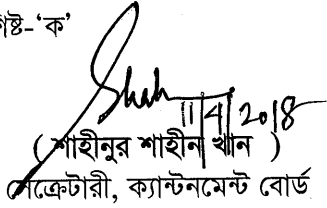 শিষ্ট-‘ক’
11/4/2018
( শাহীনুর শাহীন খান )
সেক্রেটারী, ক্যান্টনমেন্ট বোর্ড